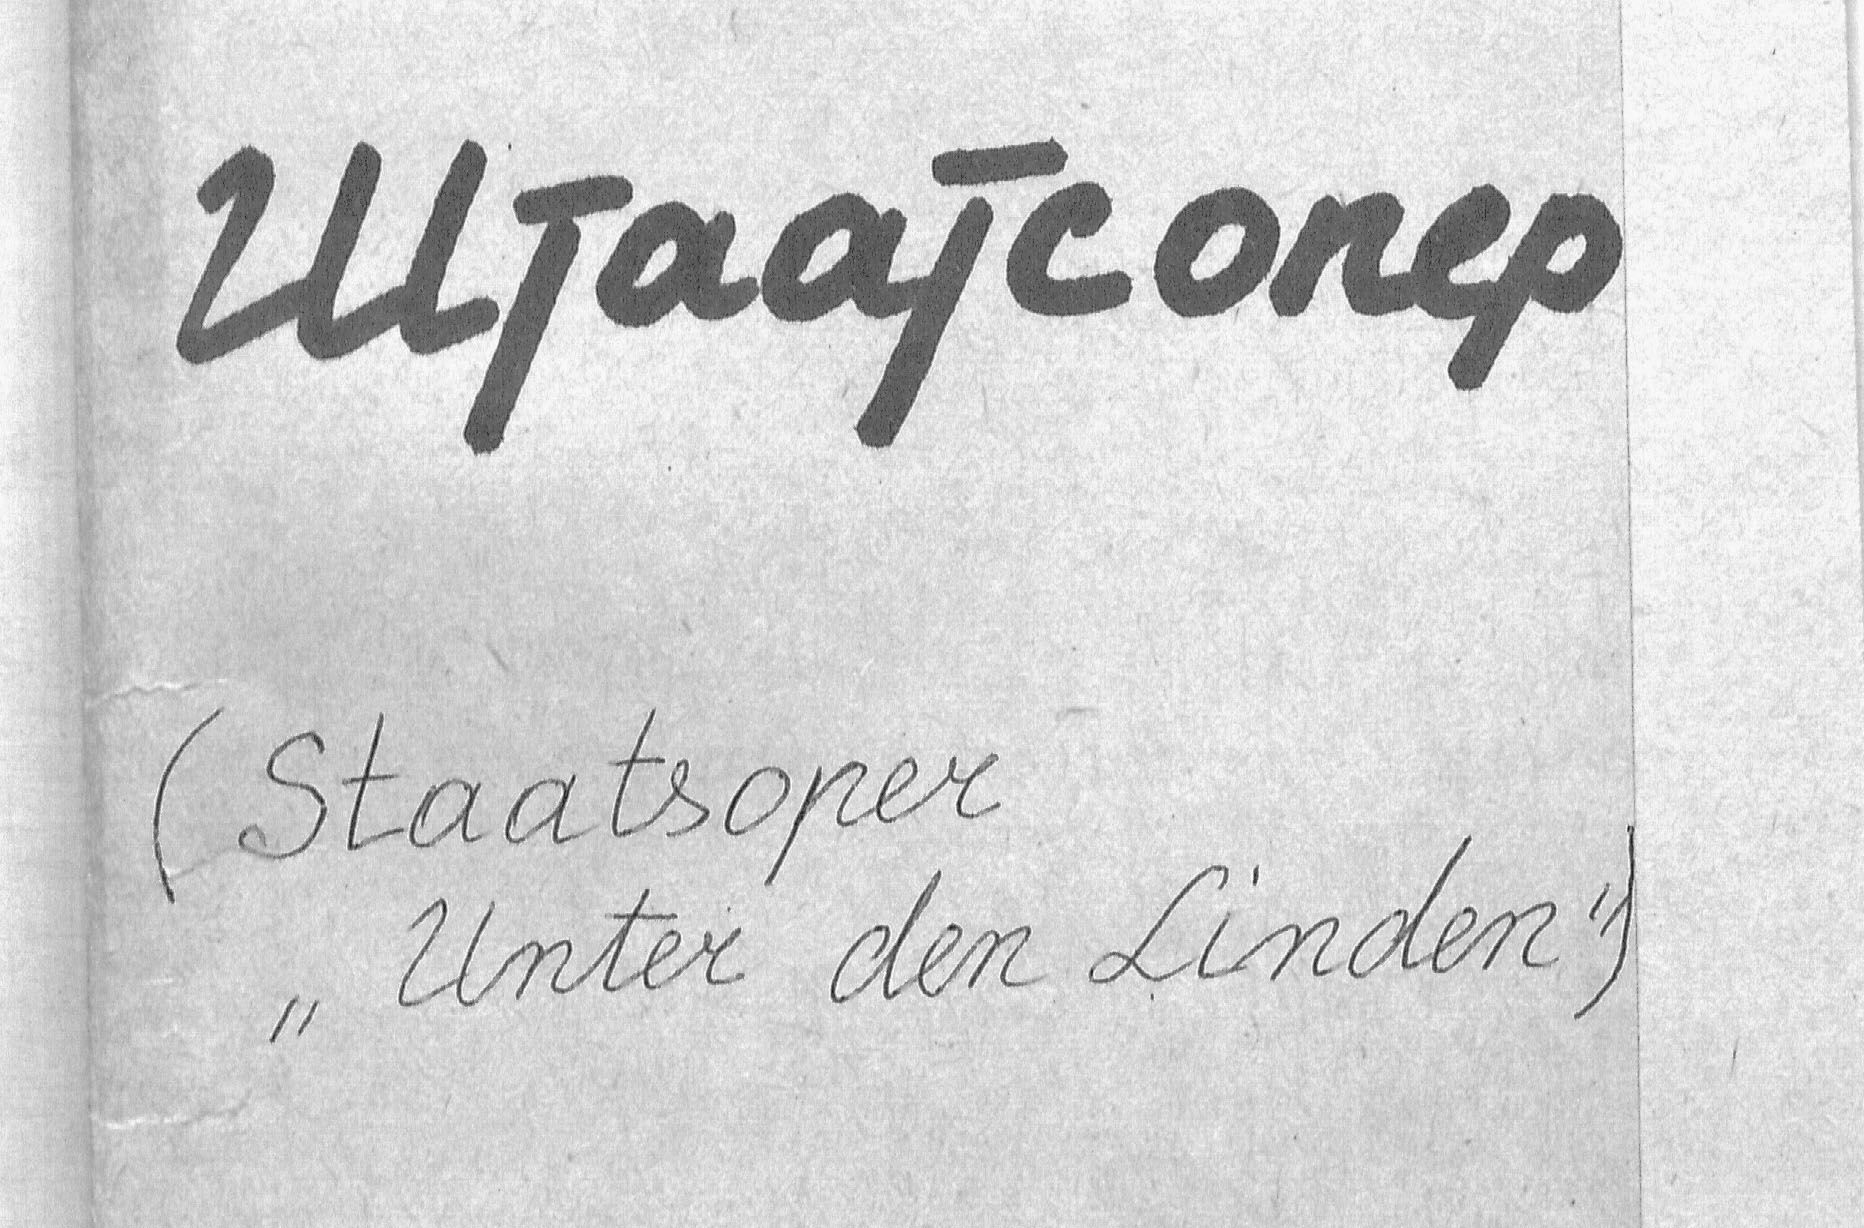 Штаатсопер
(Staatsoper
„Unter den Linden")